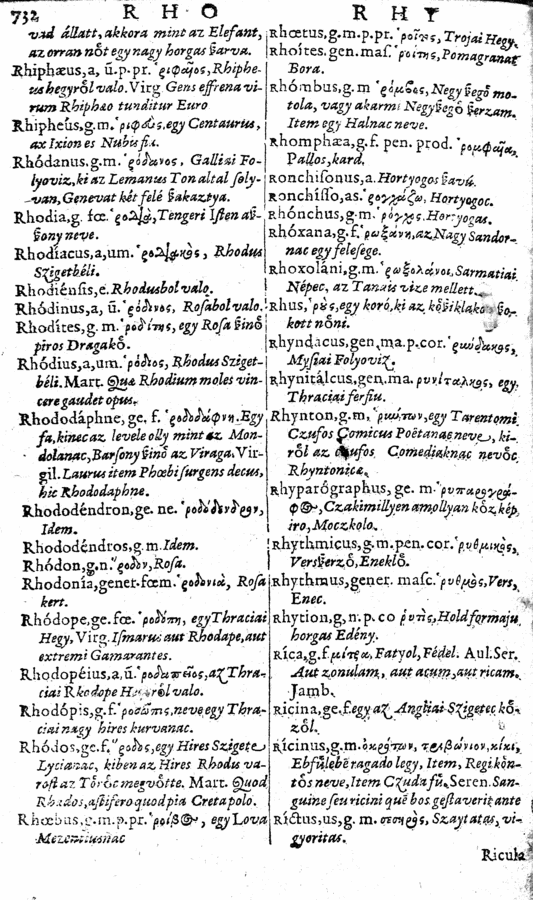 732 R H O R H Y
vad állatt, akkora mint az Elefant,
az orran nőt egy nagy horgas ßarva.
Rhiphæus, a, ū. p. pr. ῥιφαῖος, Rhiphe-
us hegyről valo. Virg Gens effrena vi-
rum Rhiphæo tunditur Euro
Rhipheús, g. m. ῥιφεὺς, egy Centaurus,
ax Ixion es Nubis fia.
Rhódanus, g. m. ῥόδανος, Galliai Fo-
lyoviz, ki az Lemanus Ton altal foly-
van, Genevat két felé ßakaztya.
Rhodia, g. fœ. Tengeri Isten aß-
ßony neve.
Rhodíacus, a, um. Rhodus
Szigethéli.
Rhodiénsis, e. Rhodusbol valo.
Rhódinus, a, ū. ῥόδινος, Rosabol valo.
Rhodítes, g. m. ῥοδίτης, egy Rosa ßinő
piros Dragakő.
Rhódius, a, um. ῥόδιος, Rhodus Sziget-
béli. Mart. Quæ Rhodium moles vin-
cere gaudet opus.
Rhododáphne, ge. f. ῥοδοδάφνη. Egy
fa, kinec az levele olly mint az Mon-
dolanac, Barsony ßinő az Viraga. Vir-
gil. Laurus item Phœbi surgens decus,
hic Rhododaphne.
Rhododéndron, ge. ne. ῥοδόδενδρον,
Idem.
Rhododéndros, g. m. Idem.
Rhódon, g. n. ῥόδον, Rosa.
Rhodonía, gener. fœm. ῥοδονιὰ, Rosa
kert.
Rhódope, ge. fœ. ῥοδόπη, egy Thraciai
Hegy, Virg. Ismarus aut Rhodape, aut
extremi Gamarantes.
Rhodopéius, a, ū. ῥοδοπεῖος, az Thra-
ciai Rhodope valo.
Rhodópis, g. f. ῥοδῶπις, neve egy Thra-
ciai nagy hires kurvanac.
Rhódos, ge. f. ῥόδος, egy Hires Szigete
Lycianac, kiben az Hires Rhodu va-
rost az Mart. Quod
Rhodos, astifero quod pia Creta polo.
Rhœbus, g. m. p. pr. egy Lova
Mezentiusnac
Rhœtus, g. m. p. pr. ῥοῖτος, Trojai Hegy.
Rhoítes, gen. mas. ῥοίτης, Pomagranat
Bora.
Rhómbus, g. m ῥόμβος, Negy ßegő mo-
tola, vagy akarmi Negyßegő ßerzam.
Item egy Halnac neve.
Rhomphæa, g. f. pen. prod. ῥομφαία,
Pallos, kard.
Ronchisonus, a. Hortyogos ßavú.
Ronchísso, as. ῥογχάζω, Hortyogoc.
Rhónchus, g. m. ῥόγχος. Hortyogas.
Rhóxana, g. f. ῥωξάνη, az Nagy Sandor-
nac egy felesege.
Rhoxoláni, g. m. ῥωξολάνοι, Sarmatiai
Népec, az Tanais vize mellett.
Rhus, ῥοῦς, egy koró, ki az
kott nőni.
Rhyndacus, gen. ma. p. cor. ῥυνδακος,
Mysiai Folyoviz.
Rhynitálcus, gen. ma. ρυνίταλκος, egy
Thraciai ferfiu.
Rhynton, g. m, egy Tarentomi
Czufos Comicus Poëtanac neve, ki-
ről az Czufos Comediaknac nevőc
Rhyntonicæ.
Rhyparógraphus, ge. m. ῥυπαρογρά-
φος, Czak imillyen amollyan kőz kép
iro, Moczkolo.
Rhythmicus, g. m. pen. cor. ῥυθμικὸς,
Versßerző, Eneklő.
Rhythmus, gener. masc. ῥυθμὸς, Vers,
Enec.
Rhytion, g, n. p. co Hold formaju
horgas Edény.
Ríca, g. f. Fatyol, Fédel. Aul. Ser.
Aut zonulam, aut acum, aut ricam.
Jamb.
Ricina, ge. f. egy az Angliai Szigetec kő-
zől.
Ricinus, g. m. κίκι,
Ebfülebē ragado legy, Item, Regi kőn-
tős neve, Item Czuda fű. Seren. San-
guine seu ricini quē bos gestaverit ante
Ríctus, us, g. m. Szaytatas, vi-
gyoritas.
Ricula